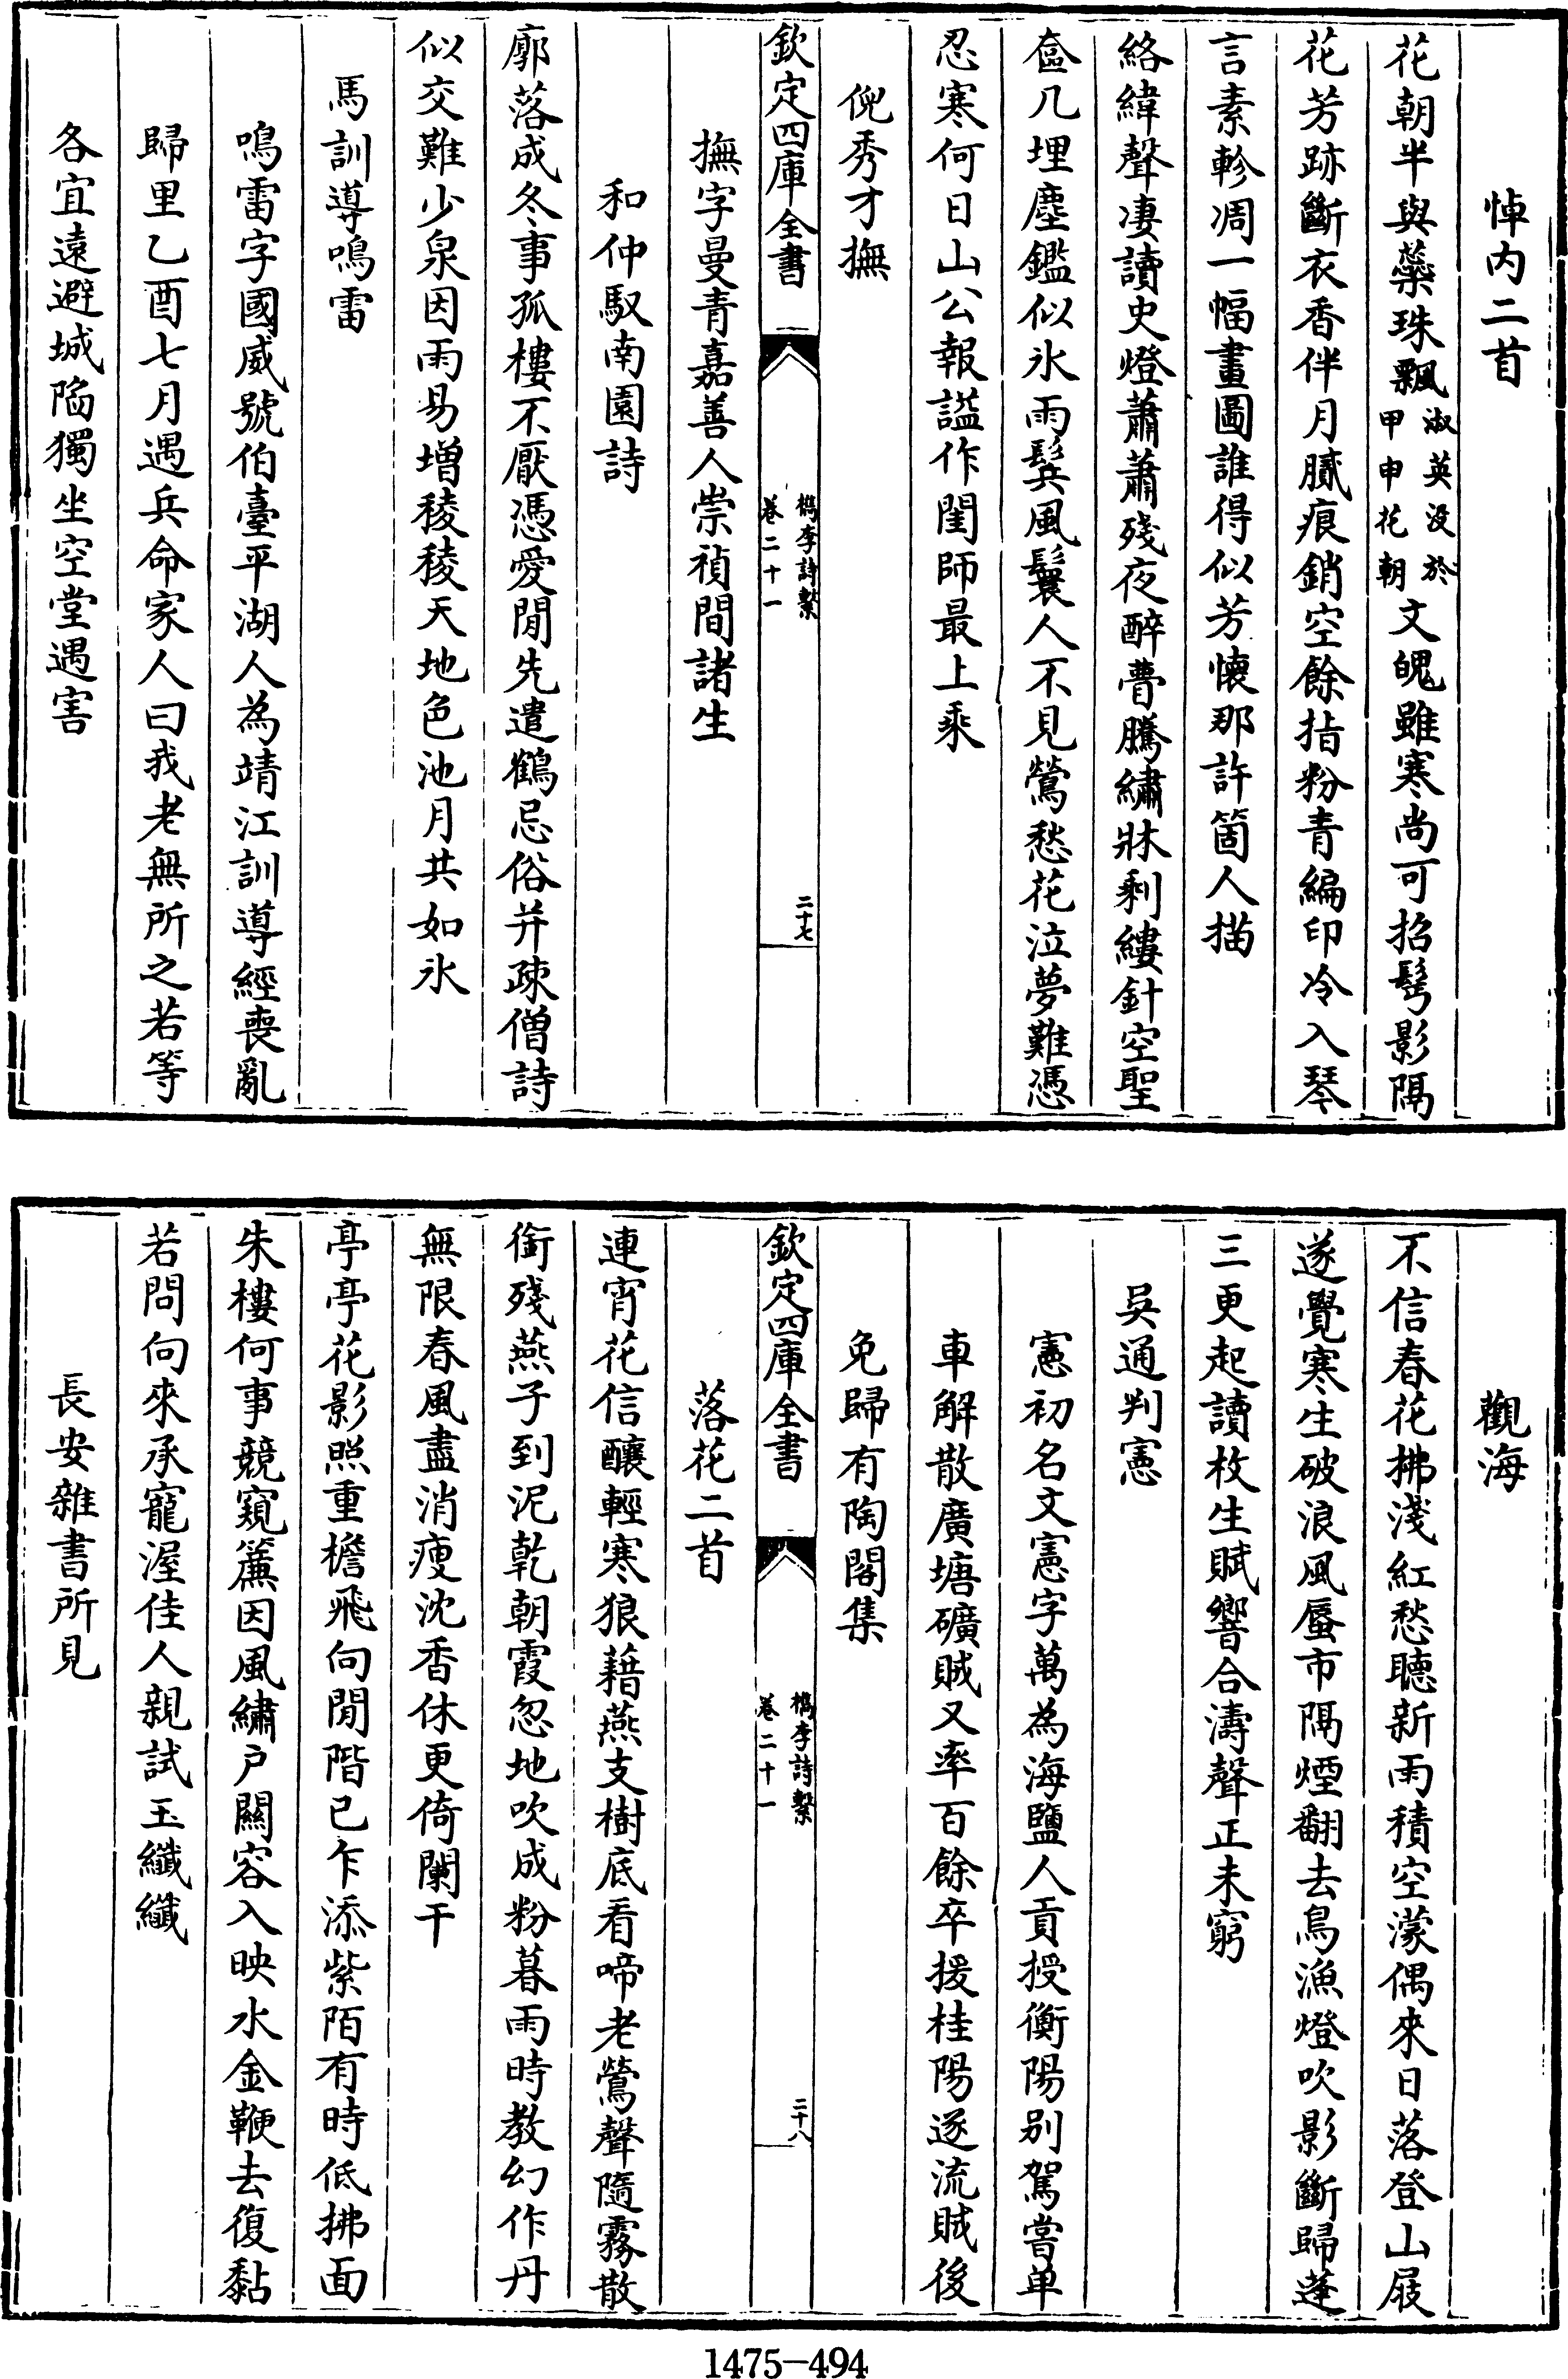 悼内二首
花朝半與蘂珠飄淑英没於甲申花朝文魄雖寒尚可招髩影隔
花芳跡斷衣香伴月膩痕銷空餘指粉青編印冷入琴
言素軫凋一幅畫圖誰得似芳懐那許箇人描
絡緯聲凄讀史燈蕭蕭殘夜醉瞢騰繡牀剩縷針空聖
奩几埋塵鑑似氷雨鬂風鬟人不見鶯愁花泣夢難憑
忍寒何日山公報謚作閨師最上乘
倪秀才撫
欽定四庫全書
檇李詩繫
卷二十一
二十七
撫字曼青嘉善人崇禎間諸生
和仲馭南園詩
廓落成冬事孤樓不厭憑愛閒先遣鶴忌俗并疎僧詩
似交難少泉因雨易增稜稜天地色池月共如氷
馬訓導鳴雷
鳴雷字國威號伯臺平湖人為靖江訓導經喪亂
歸里乙酉七月遇兵命家人曰我老無所之若等
各宜遠避城陷獨坐空堂遇害
觀海
不信春花拂淺紅愁聴新雨積空濛偶來日落登山屐
遂覺寒生破浪風蜃市隔煙翻去鳥漁燈吹影斷歸蓬
三更起讀枚生賦響合濤聲正未窮
吳通判憲
憲初名文憲字萬為海鹽人貢授衡陽别駕嘗单
車解散廣塘礦賊又率百餘卒援桂陽遂流賊後
免歸有陶閣集
欽定四庫全書
檇李詩繫
卷二十一
二十八
落花二首
連宵花信釀輕寒狼藉燕支樹底看啼老鶯聲隨霧散
銜殘燕子到泥乾朝霞忽地吹成粉暮雨時教幻作丹
無限春風盡消瘦沈香休更倚闌干
亭亭花影照重檐飛向閒階已乍添紫陌有時低拂面
朱樓何事競窺簾因風繡戸闗容入映水金鞭去復黏
若問向來承寵渥佳人親試玉纖纖
長安雜書所見
1475-494